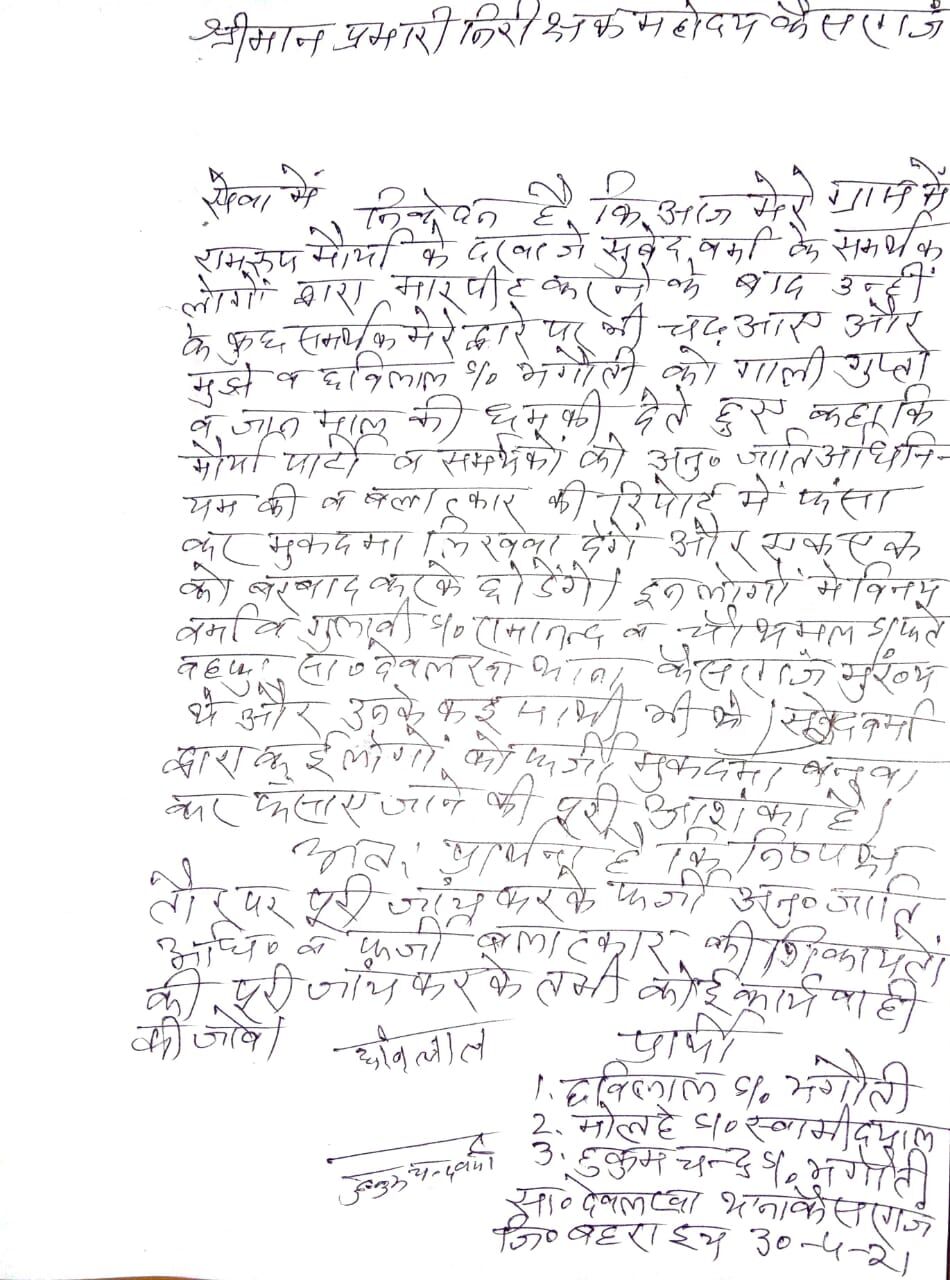 श्रीमान प्रभारी निरीक्षक महोदय कैसरगंज
सेवा में
निवेदन है कि आज मेरे ग्राम में
रामरूप मौर्या के दरवाजे सुवेद वर्मा के समर्थक
लोगों द्वारा मारपीट करने के बाद उन्हीं
के कुछ समर्थक मेरे द्वारे पर भी चढ़ आए और
मुझे व छविलाल S/o भगौती को गाली गुप्ता
व जान माल की धमकी देते हुए कहा कि
मौर्या पार्टी व समर्थकों को अनु० जाति अधिनि-
यम की व बलात्कार की रिपोर्ट में फंसा
कर मुकदमा लिखवा देंगें और एक एक
को बरबाद करके छोडेंगे। इन लोगों मे विनय
वर्मा व गुलाबी S/o रामानन्द व चौथमल S/o फते
सा० देवलखा थाना कैसरगंज मुख्य
थे और उनके कई साथी भी थे। सुवेद वर्मा
द्वारा कई लोगों को फर्जी मुकदमा बनवा
कर फंसाए जाने की पूरी आशंका है।
अतः प्रार्थना है कि निष्पक्ष
तौर पर पूरी जांच करके फर्जी अनु० जाति
अधि० व फर्जी बलात्कार की शिकायतों
की पूरी जांच करके तभी कोई कार्यवाही
की जावे।
छविलाल
प्रार्थी
1. छविलाल S/o भगौती
2. मोलहे S/o स्वामीदयाल
हुकुम चन्द वर्मा
3. हुकुम चन्द्र S/o भगौती
सा० देवलखा थाना कैसरगंज
जि० बहराइच 30-4-21